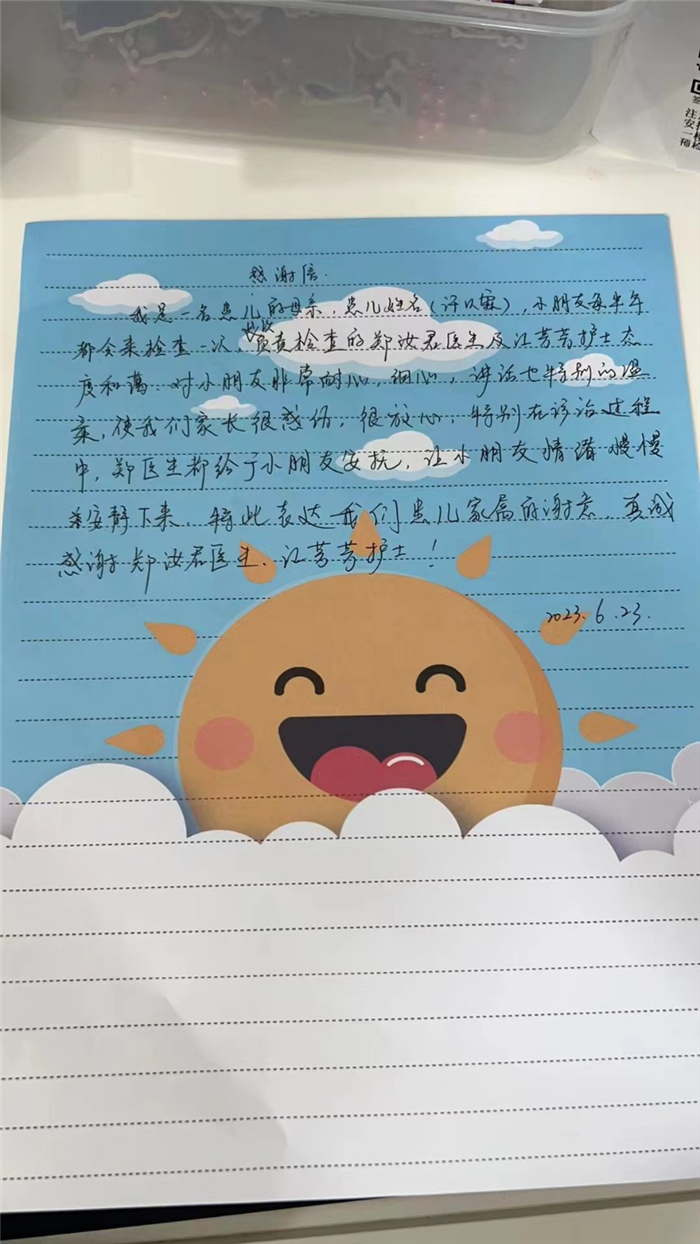 感谢信.
我是一名患儿的母亲,患儿姓名(许以霖),小朋友每半年
都会来检查一次,负责检查的郑汝君医生及江菁菁护士态
度和蔼.对小朋友非常耐心,细心,讲话也特别的温
柔,使我们家长很感仂,很放心,特别在诊治过程
中,郑医生都给了小朋友安抚,让小朋友情绪慢慢
安静下来.特此表达我们患儿家属的谢意,真诚
感谢郑汝君医生、江菁菁护士!
2023.6.23.
注
安
一楼
预检